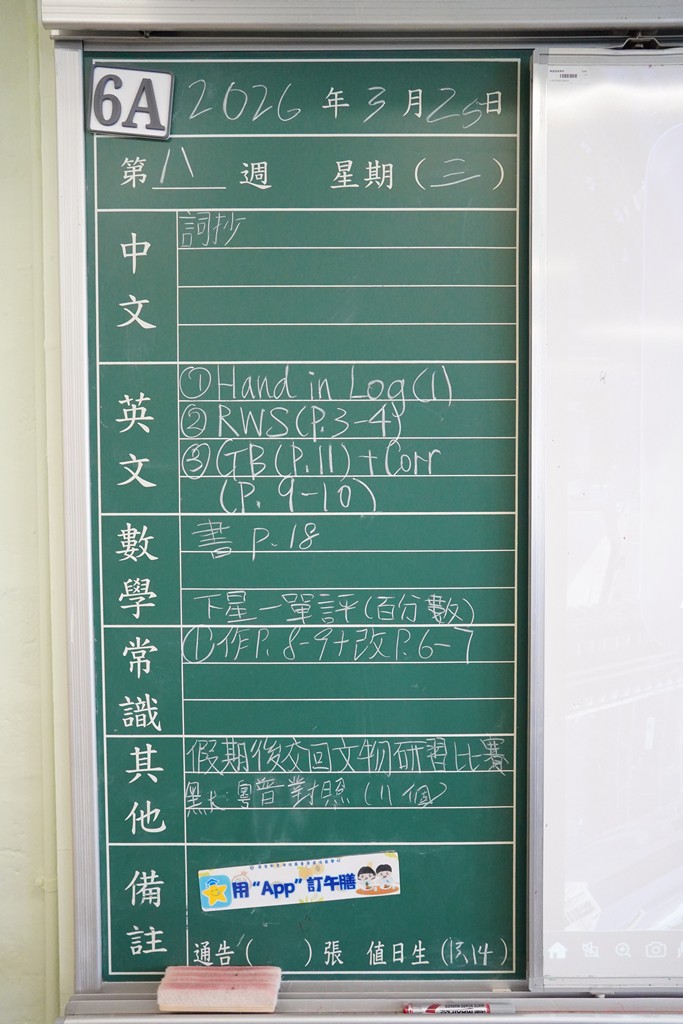 6A 2026年3月25日
第八週 星期(三)
中文 詞抄
英文 ①Hand in Log(1)
②RWS(P.3-4)
③GB(P.11)+Corr
(P.9-10)
數學 書 P.18
下星一單評(百分數)
常識 ①作P.8-9+改P.6-7
其他 假期後交回文物研習比賽
默 粵普對照(11個)
備註
用“App”訂午膳
通告( )張 值日生(13,14)